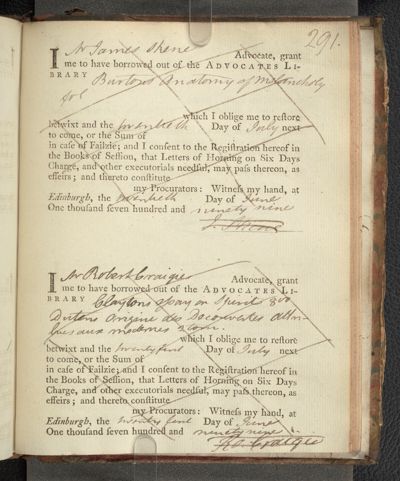 291.
I Mr James Skene Advocate, grant
me to have borrowed out of the ADVOCATES LI-
BRARY Burtons Anatomy of Melancholy
fol
which I oblige me to restore
betwixt and the twentieth Day of July next
to come, or the Sum of
in case of Failzie; and I consent to the Registration hereof in
the Books of Session, that Letters of Horning on Six Days
Charge, and other executorials needful, may pass thereon, as
effeirs; and thereto constitute
my Procurators: Witness my hand, at
Edinburgh, the twentieth Day of June
One thousand seven hundred and ninety nine
J. Skene
I Mr Robert Craigie Advocate, grant
me to have borrowed out of the ADVOCATES LI-
BRARY Claytons essay on Spirit 8vo
Dutens origine des Decouvertes attri-
buées aux modernes 2 tom.
which I oblige me to restore
betwixt and the twenty first Day of July next
to come, or the Sum of
in case of Failzie; and I consent to the Registration hereof in
the Books of Session, that Letters of Horning on Six Days
Charge, and other executorials needful, may pass thereon, as
effeirs; and thereto constitute
my Procurators: Witness my hand, at
Edinburgh, the twenty first Day of June
One thousand seven hundred and ninety nine
Ro. Craigie